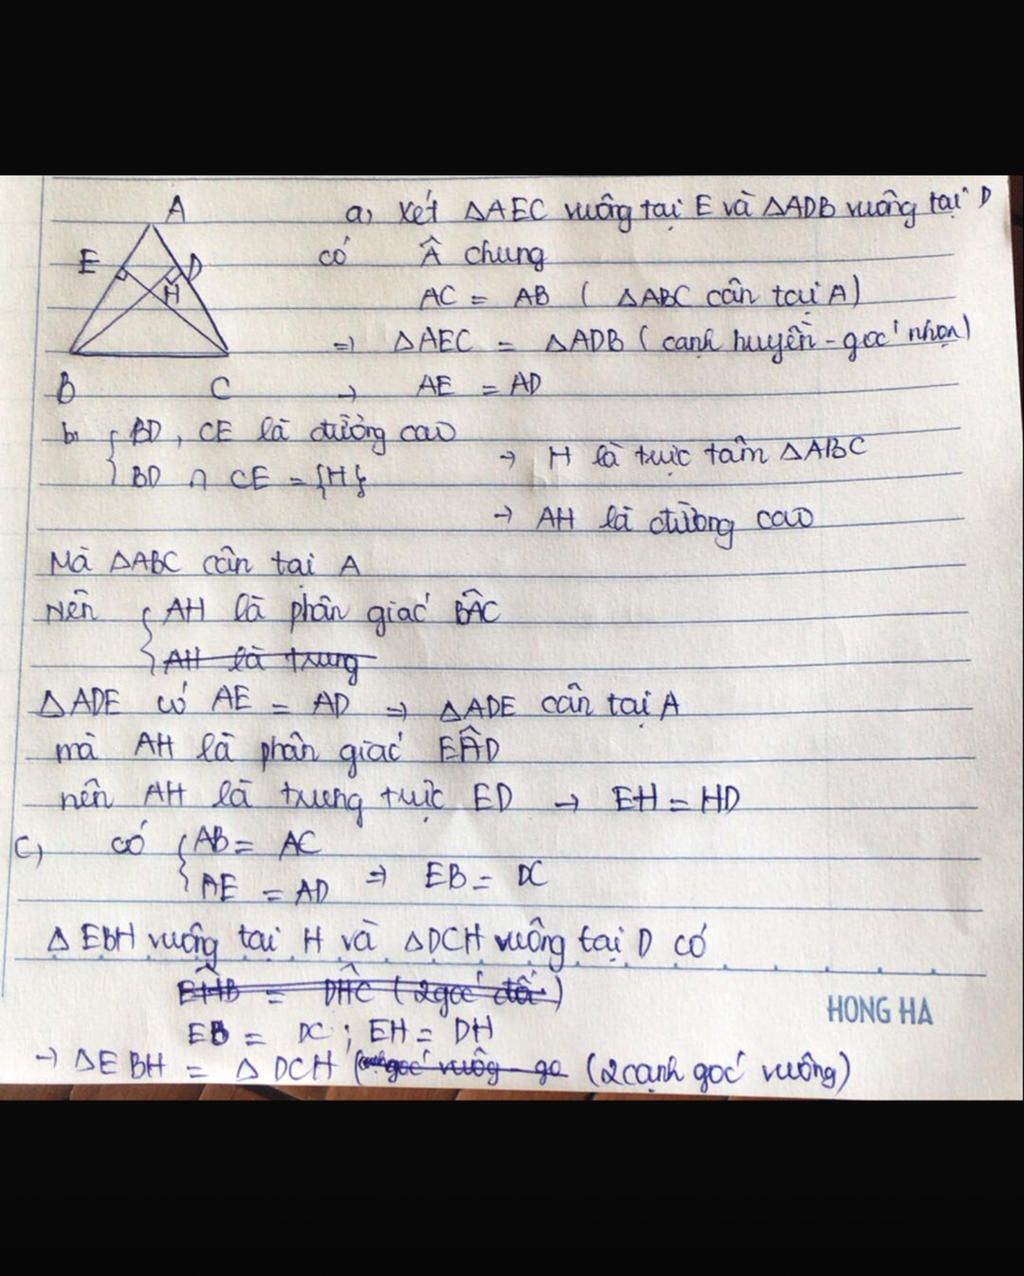 A
E D
H
B C
a, Xét ΔAEC vuông tại E và ΔADB vuông tại D
có Â chung
AC = AB ( ΔABC cân tại A)
=> ΔAEC = ΔADB ( cạnh huyền - góc nhọn)
→ AE = AD
b, { BD, CE là đường cao
BD ∩ CE = {H}
→ H là trực tâm ΔABC
→ AH là đường cao
Mà ΔABC cân tại A
Nên { AH là phân giác BÂC
AH là trung
ΔADE có AE = AD => ΔADE cân tại A
mà AH là phân giác EÂD
nên AH là trung trực ED → EH = HD
C, có { AB = AC
AE = AD => EB = DC
Δ EBH vuông tại H và ΔDCH vuông tại D có
EĤB = DĤC ( 2 góc đối )
EB = DC ; EH = DH
→ ΔEBH = ΔDCH ( góc vuông - go (2 cạnh góc vuông)
HONG HA